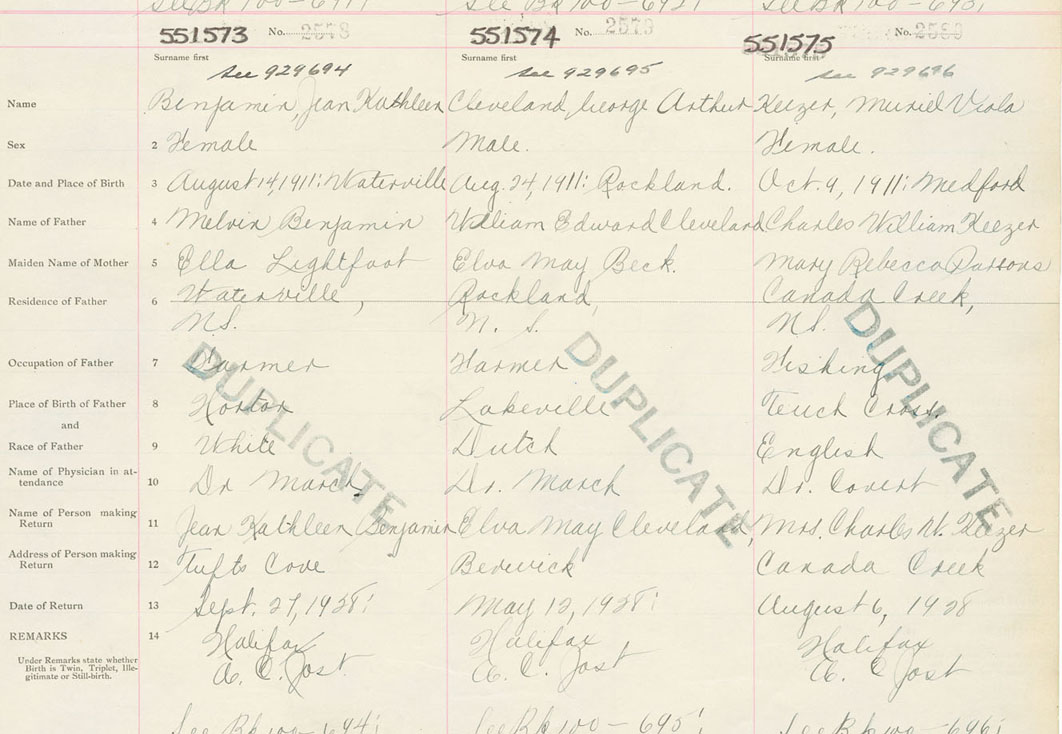 See Bk 100-
551573 No. 2578 551574 No. 2579 551575 No. 2580
Surname first Surname first Surname first
see 929694 see 929695 see 929696
Name Benjamin, Jean Kathleen Cleveland, George Arthur Keezer, Muriel Viola
Sex 2 Female Male. Female.
Date and Place of Birth 3 August 14, 1911: Waterville Aug. 24, 1911: Rockland. Oct. 9, 1911: Medford
Name of Father 4 Melvin Benjamin William Edward Cleveland Charles William Keezer
Maiden Name of Mother 5 Ella Lightfoot Elva May Beck. Mary Rebecca Parsons
Residence of Father 6 Waterville, Rockland, Canada Creek,
N.S. N. S. N.S.
Occupation of Father 7 Farmer Farmer Fishing
Place of Birth of Father 8 Horton Lakeville
and
Race of Father 9 White Dutch English
Name of Physician in at-
tendance 10 Dr March, Dr. March Dr. Covert
Name of Person making
Return 11 Jean Kathleen Benjamin Elva May Cleveland, Mrs. Charles W. Keezer
Address of Person making
Return 12 Tufts Cove Berwick Canada Creek
Date of Return 13 Sept. 27, 1938: May 12, 1938: August 6, 1938
REMARKS 14 Halifax Halifax Halifax
Under Remarks state whether
Birth is Twin, Triplet, Ille-
gitimate or Still-birth.
A. C. Jost. A. C. Jost A. C. Jost
DUPLICATE DUPLICATE DUPLICATE
See Bk 100-694: See Bk 100-695: See Bk 100-696: